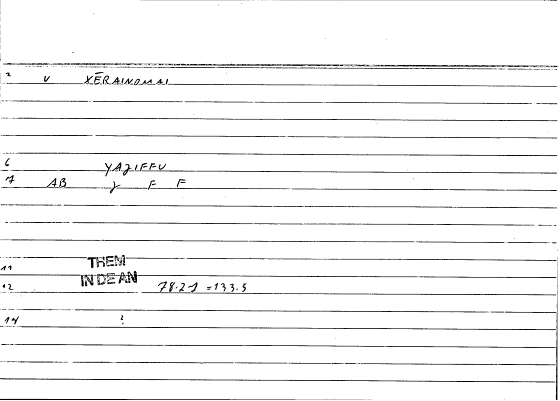 2 V XĒRAINOMAI
6 YAJIFFU
7 AB J F F
11 THEM
12 IN DE AN 78.21 =133.5
14 !